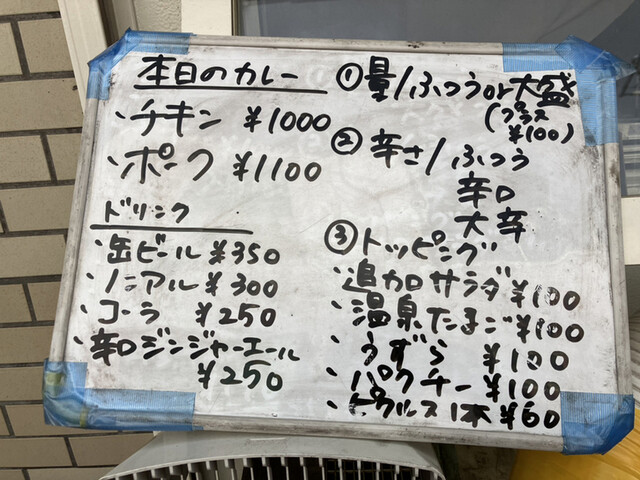 本日のカレー
・チキン ¥1000
・ポーク ¥1100
ドリンク
・缶ビール ¥350
・ノンアル ¥300
・コーラ ¥250
・辛口ジンジャーエール
¥250
①量/ふつうor大盛
(プラス
¥100)
②辛さ/ふつう
辛口
大辛
③トッピング
・追加サラダ ¥100
・温泉たまご ¥100
・うずら ¥100
・パクチー ¥100
・ピクルス1本 ¥60